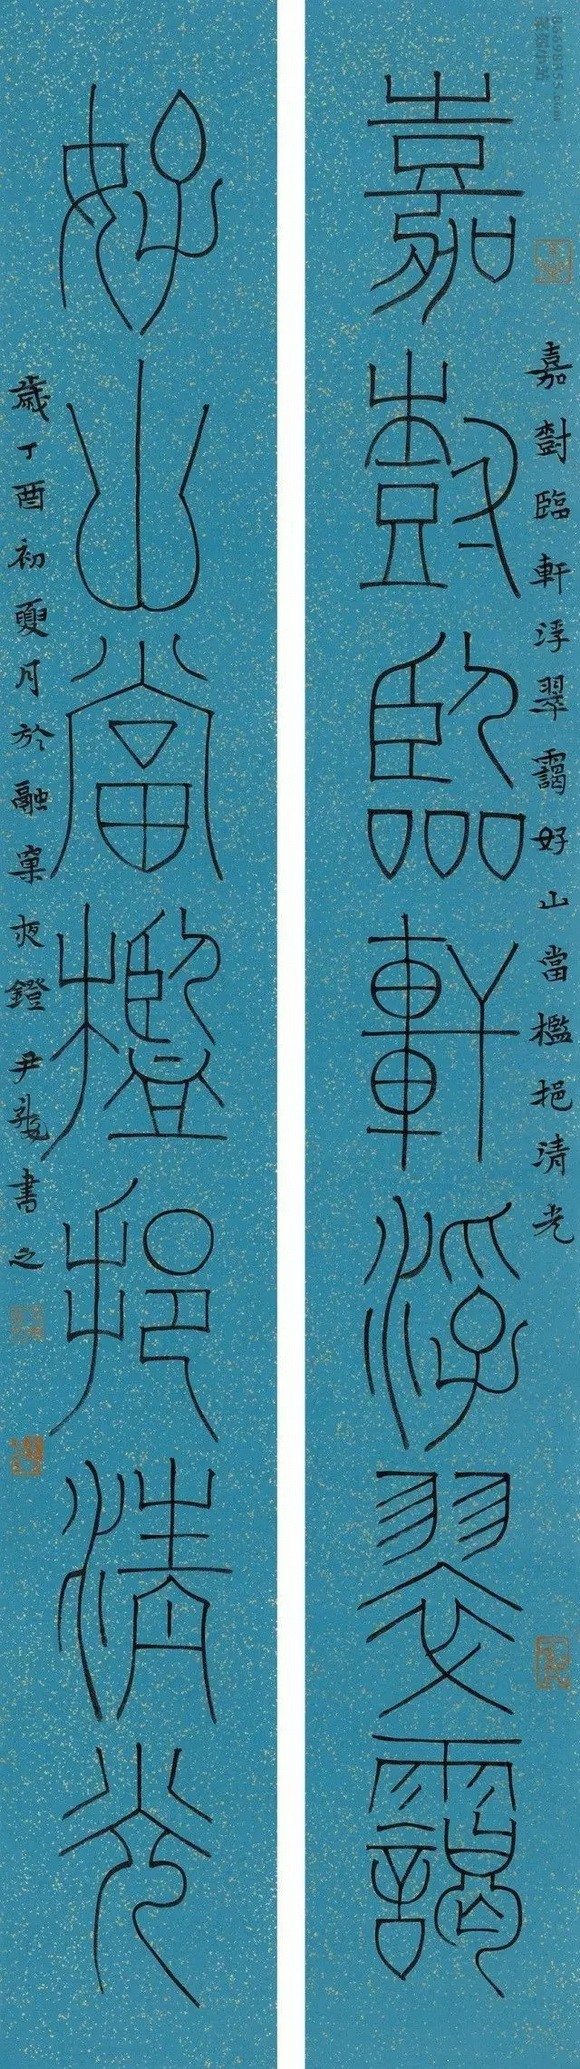 嘉尌臨軒浮翠靄
嘉尌臨軒浮翠靄好山當檻挹清光
好山當檻挹清光
歲丁酉初夏月於融窠夜鐙尹龍書之